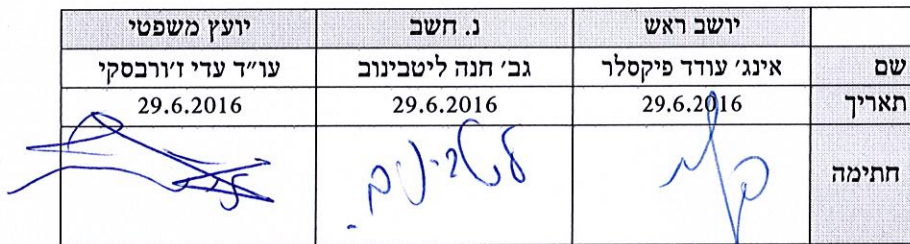 יושב ראש נ. חשב יועץ משפטי
שם אינג׳ עודד פיקסלר גב׳ חנה ליטבינוב עו״ד עדי ז׳ורבסקי
תאריך 29.6.2016 29.6.2016 29.6.2016
חתימה